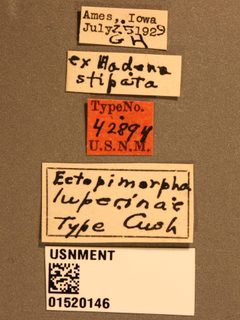 Ames, Iowa
July 25 1929
G H
ex Hadena
stipata
Type No.
42894
U.S.N.M.
Ectopimorpha
luperinae
Type Cush
USNMENT
01520146